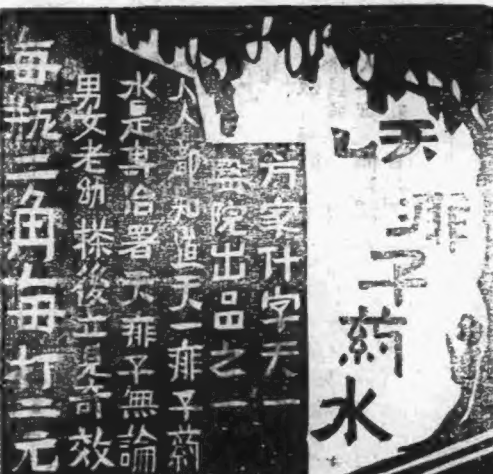 天一
痱子葯水
方家什字天一
醫院出品之一
人人都知道天一痱子葯
水是專治署天痱子無論
男女老幼搽後立見奇效
每瓶二角每打二元